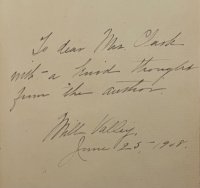 To dear Mrs Clark
with - a kind thought
from the author
Mill Valley,
June 25 - 1908.